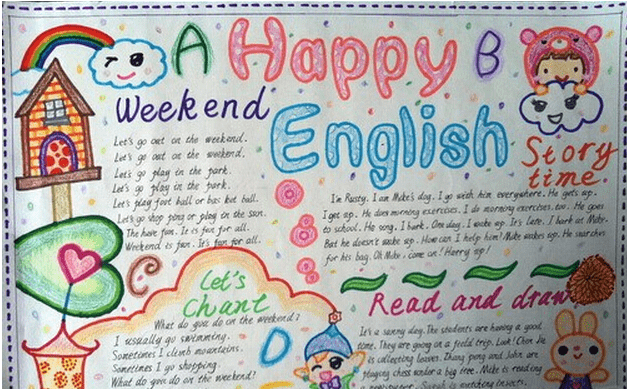 A Happy B
English
Weekend
Let's go out on the weekend.
Let's go out on the weekend.
Let's go play in the park.
Let's go play in the park.
Let's play foot ball or bas ket ball.
Let's go shop ping or play in the sun.
The have fun. It is fun for all.
Weekend is fun. It's fun for all.
Story
time.
I'm Rusty. I am Mike's dog. I go with him everywhere. He gets up.
I get up. He does morning exercises. I do morning exercises, too. He goes
to school. He song. I bark. One day, I wake up. It's late. I bark at Mike.
But he doesn't wake up. How can I help him? Mike wakes up. He searches
for his bag. Oh Mike, come on! Harry up!
C
Let's
Chant
What do you do on the weekend?
I usually go swimming.
Sometimes I climb mountains.
Sometimes I go shopping.
What do you do on the weekend?
D
Read and draw
It's a sunny day. The students are having a good
time. They are going on a field trip. Look! Chen Jie
is collecting leaves. Zhang peng and John are
playing chess under a big tree. Mike is reading
a newspaper. Sarah is